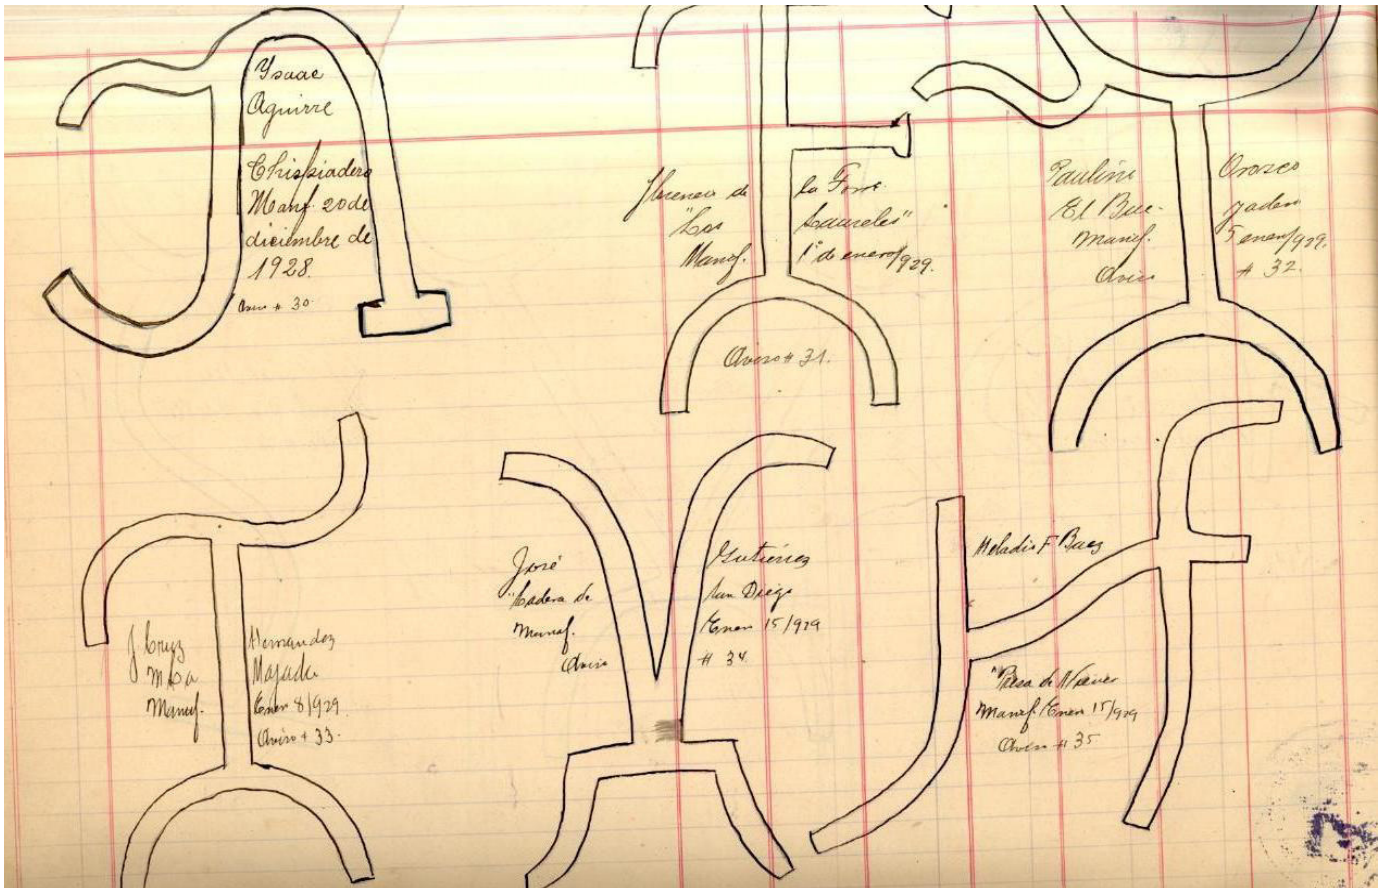 Ysaac
Aguirre
Chispiadero
Manf. 20 de
diciembre de
1928.
Aviso # 30
Florencio de la Torre
"Los Laureles"
Manf. 1° de enero/929.
Aviso # 31.
Paulino Orozco
El Bue-
Manf. 5 enero/929.
Aviso # 32.
J Cruz Hernandez
Majada
Manf. Enero 8/929
Aviso # 33.
José Gutierrez
de San Diego
Manf. Enero 15/929
Aviso # 34
Meladis F Baez
"Presa de
Manf. Enero 15/929
Aviso # 35